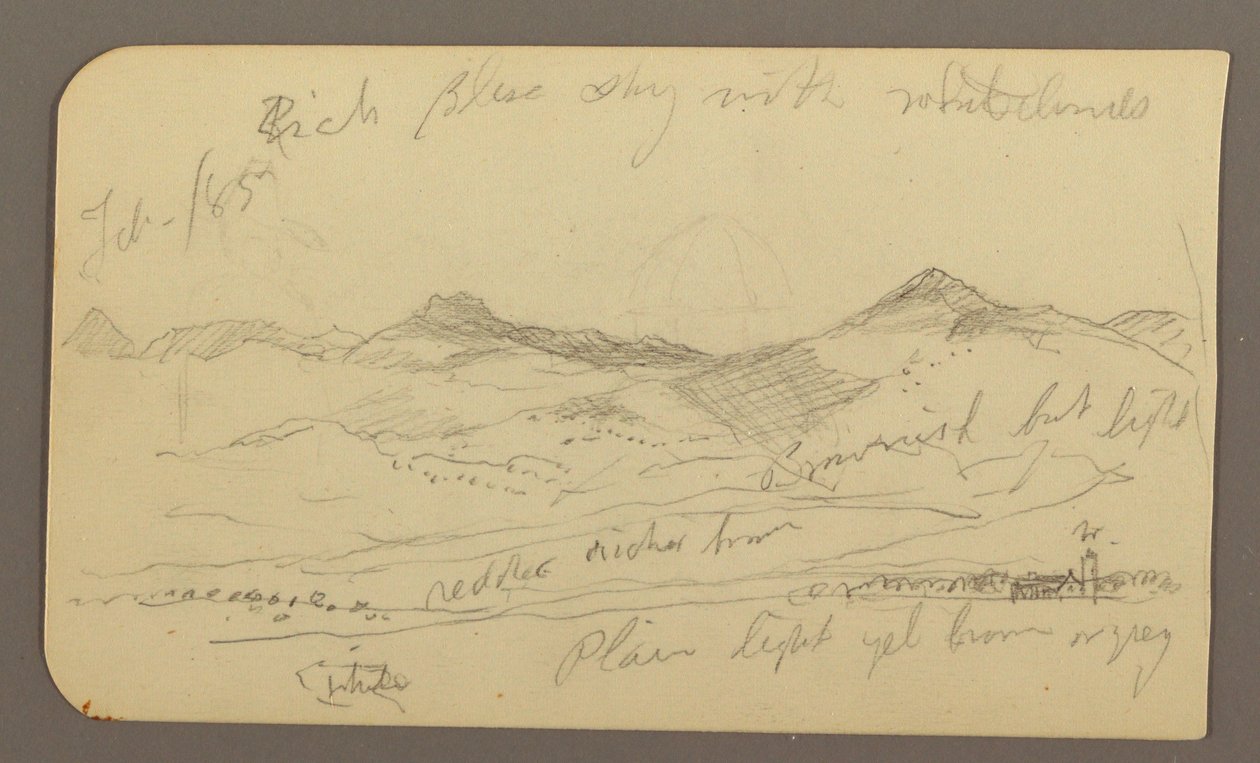 Rich Blue sky with white clouds
Feb - 185
Brownish but light
redder richer brown
w.
Plain light yel brown or grey
white